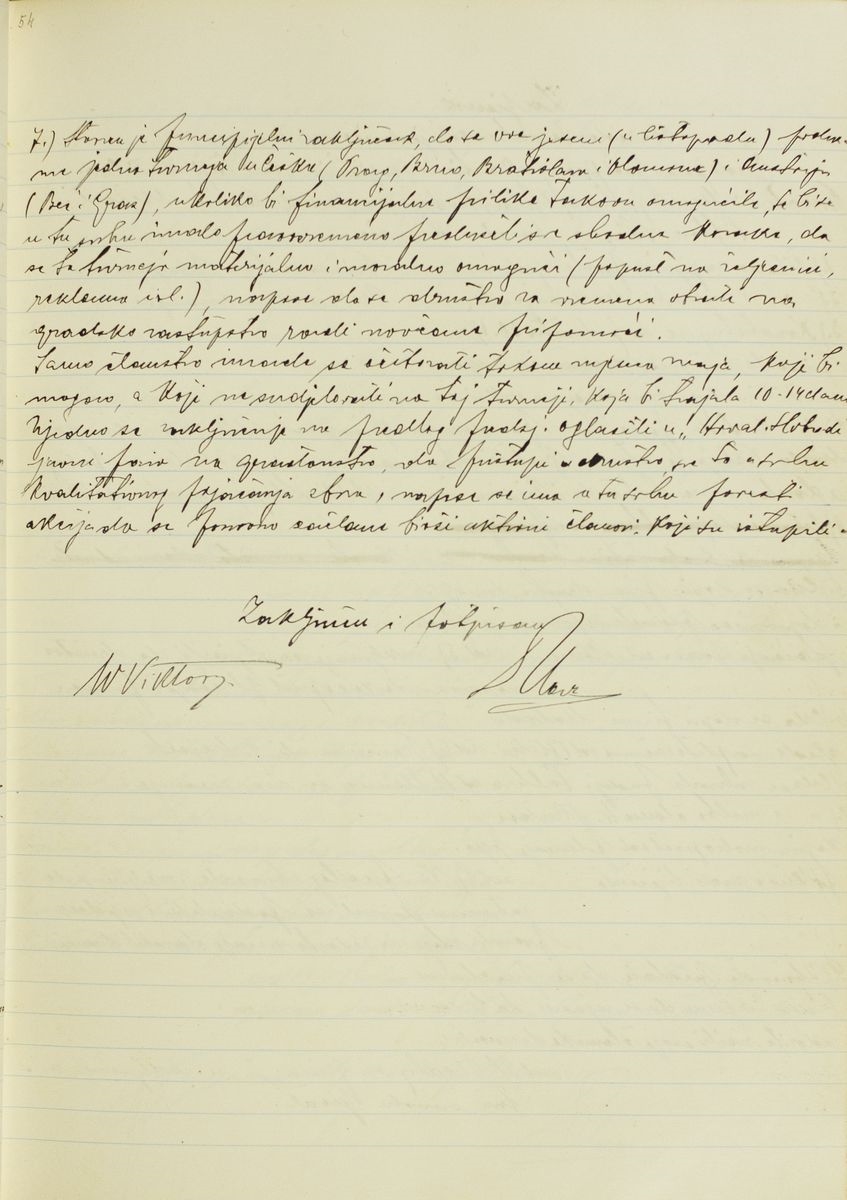 54
7.) Stvoren je principijelni zaključak, da se ove jeseni (u listopadu) poduz-
me jedna turneja u Češku (Prag, Brno, Bratislava i Olomouc) i Austriju
(Beč i Graz), ukoliko bi financijalne prilike takovu omogućile, te bi se
u tu svrhu imalo pravovremeno preduzeti sve shodne korake, da
se ta turneja materijalno i moralno omogući (popust na željeznici,
reklama i sl.), napose da se društvo za vremena obrati na
gradsko zastupstvo radi novčane pripomoći.
Samo članstvo imade se očitovati tokom mjeseca maja, koji bi
mogao, a koji ne sudjelovati na toj turneji, koja bi trajala 10-14 dana
Ujedno se zaključuje na predlog predsj. oglasiti u „Hrvat. Slobodi
javni poziv na građanstvo, da pristupi u društvo, sve to u svrhu
kvalitativnog pojačanja zbora, napose se ima u tu svrhu povesti
akcija da se ponovo učlane bivši aktivni članovi, koji su istupili.
Zaključeno i potpisano
W Viktory